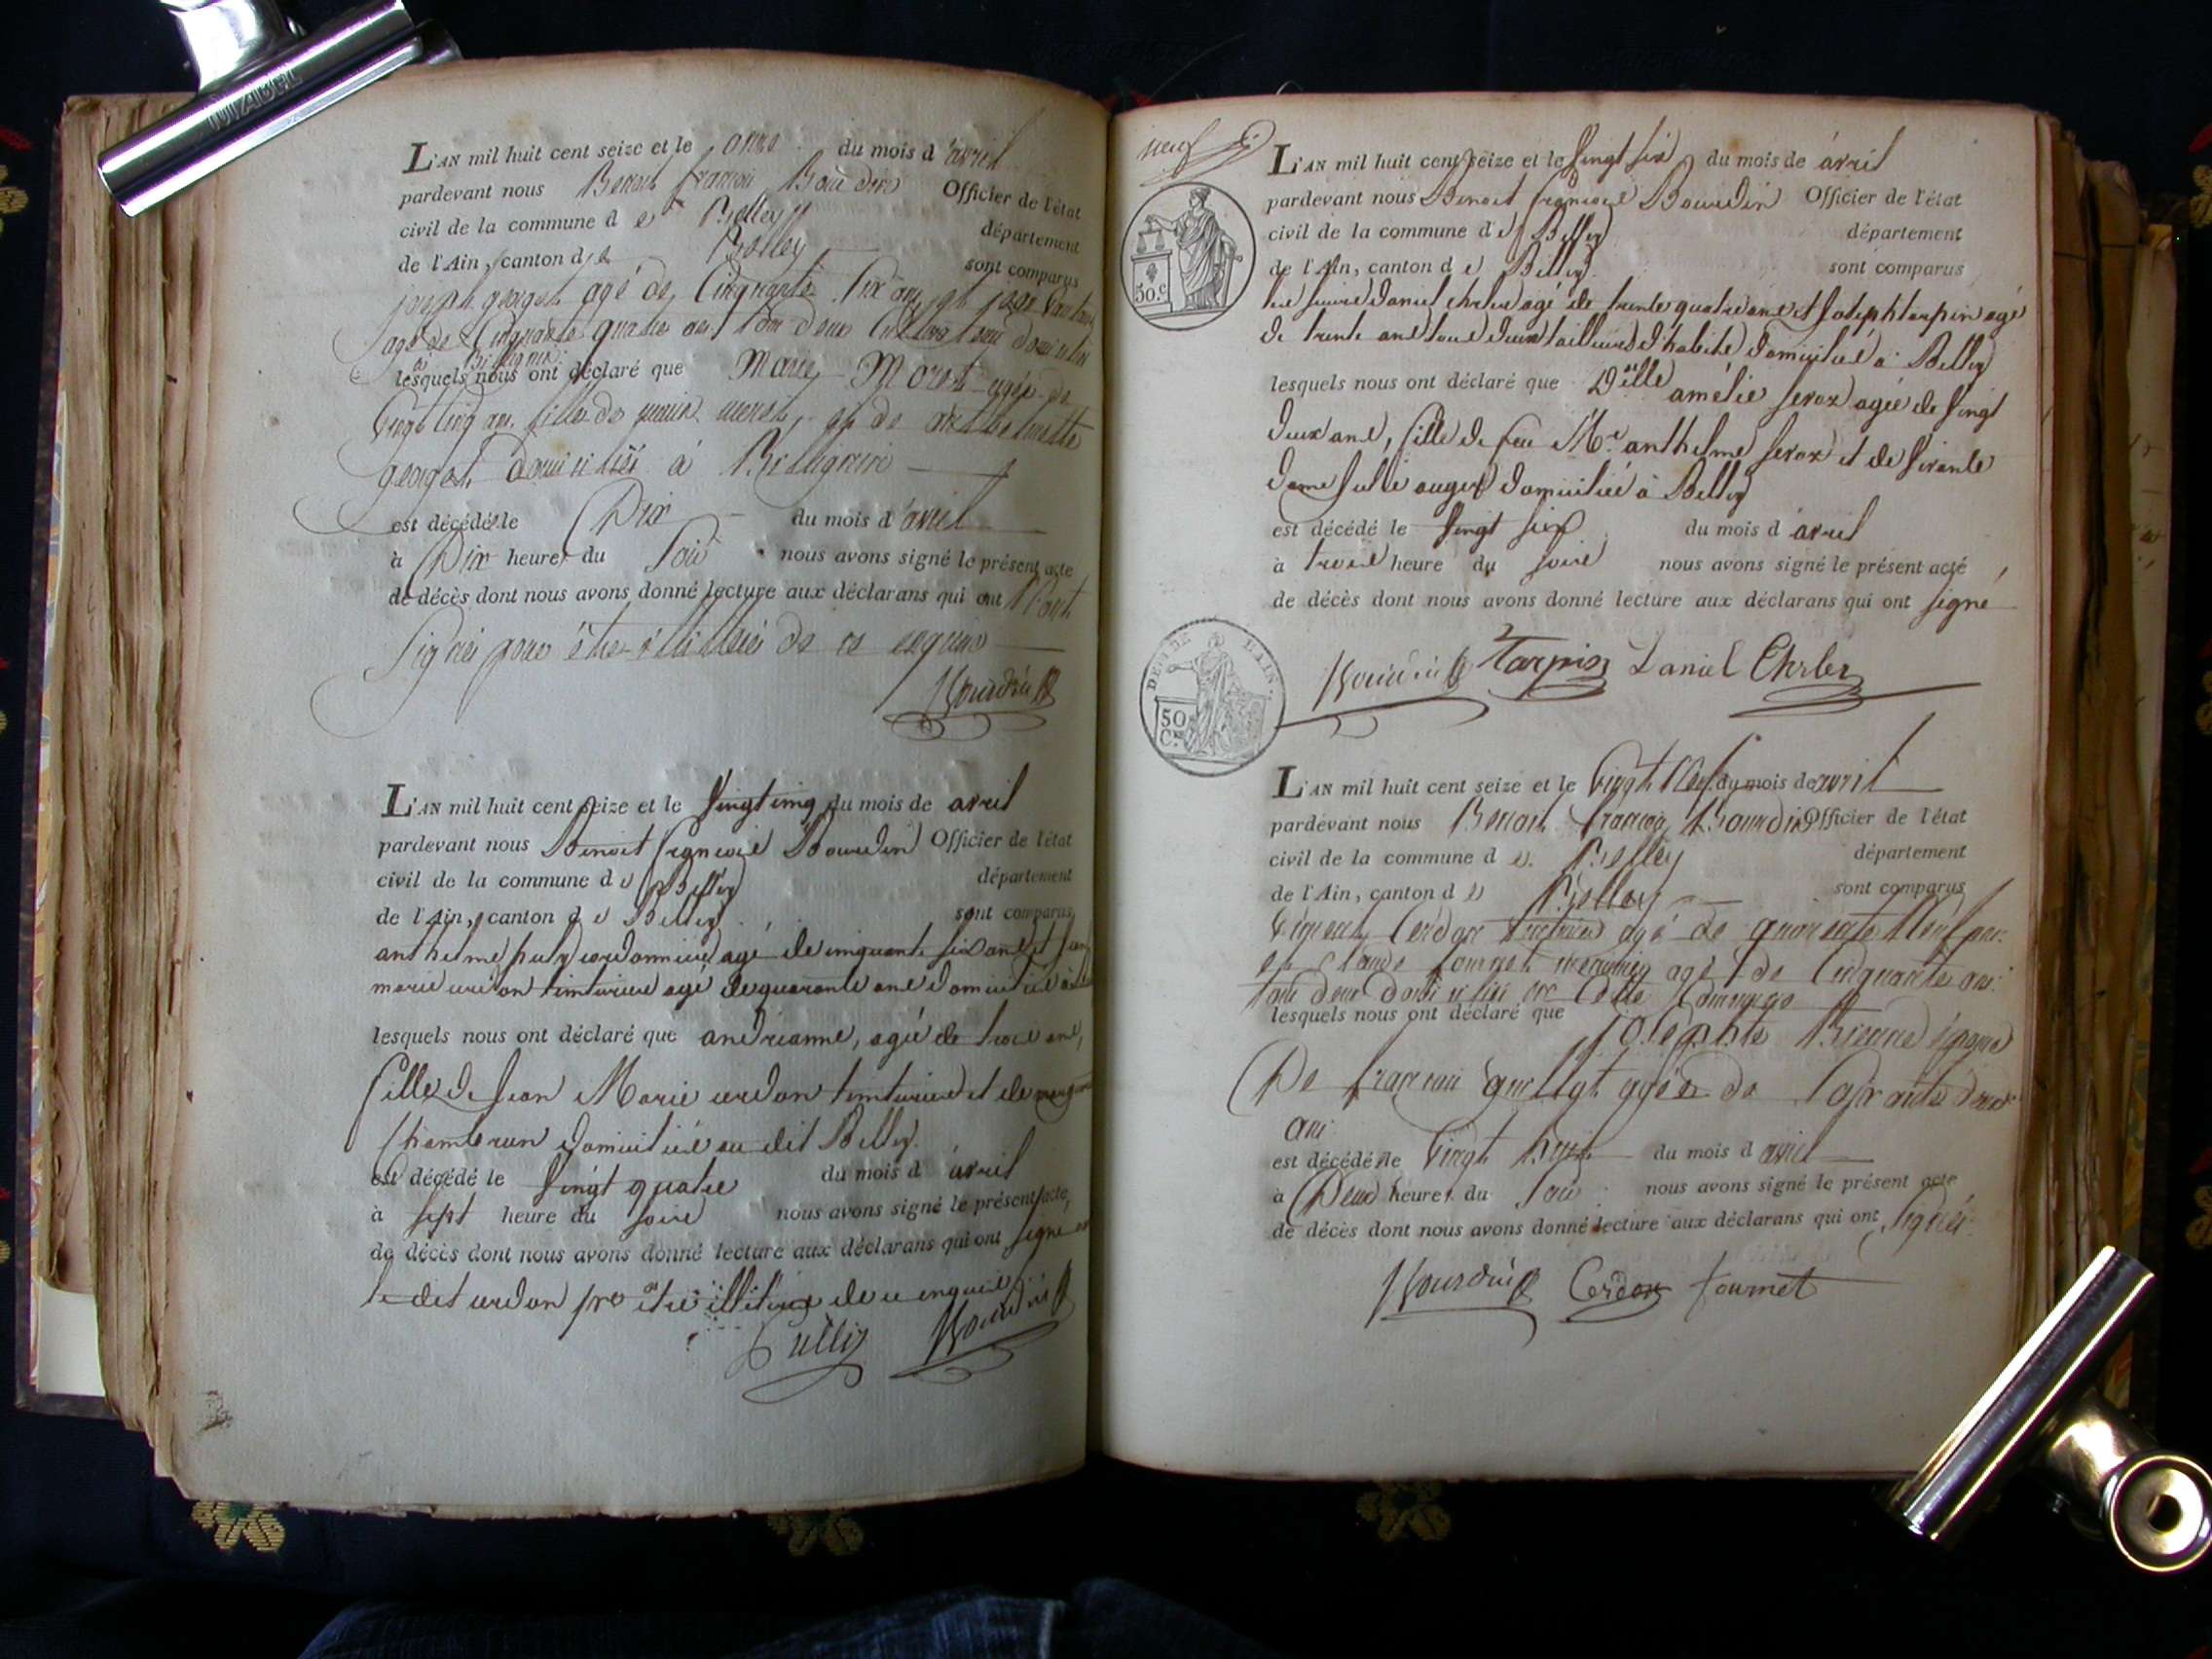 L'AN mil huit cent seize et le onze du mois d'avril
pardevant nous Benoit françois Bourdin Officier de l'état
civil de la commune de Belley département
de l'Ain, canton de Belley sont comparus
joseph georget agé de Cinquante Six ans et
agé de Cinquante quatre ans tous deux
lesquels nous ont déclaré que Marie Moret agée de
Vingt Cinq ans fille de moret, et de
georget domiciliés à
est décédée le Dix du mois d'avril
à Dix heures du Soir nous avons signé le présent acte
de décès dont nous avons donné lecture aux déclarans qui ont
Signés pour être illitterés de ce enquis
Bourdin
L'AN mil huit cent seize et le Vingt cinq du mois de avril
pardevant nous Benoit françois Bourdin Officier de l'état
civil de la commune de Belley département
de l'Ain, canton de Belley sont comparus
anthelme cordonnier agé de cinquante six ans et jean
marie cerdon teinturier agé de quarante ans domicilié à
lesquels nous ont déclaré que andrianne, agée de trois ans,
fille de Jean Marie cerdon teinturier et de
Chambrun domiciliés au dit Belley
est décédé le Vingt quatre du mois d avril
à sept heure du soire nous avons signé le présent acte,
de décès dont nous avons donné lecture aux déclarans qui ont signé
le dit cerdon pr être illitere de ce enquis
Bourdin
neuf
50.c
L'AN mil huit cent seize et le Vingt six du mois de avril
pardevant nous Benoit françois Bourdin Officier de l'état
civil de la commune de Belley département
de l'Ain, canton de Belley sont comparus
daniel ehrler agé de trente quatre ans et Joseph tarpin agé
de trente ans tous deux tailleurs d'habits domiciliés à Belley
lesquels nous ont déclaré que Dlle amélie seroz agée de Vingt
deux ans, fille de feu Mr anthelme seroz et de Vivante
dame auger domiciliée à Belley
est décédé le Vingt six du mois d avril
à trois heure du soire nous avons signé le présent acte
de décès dont nous avons donné lecture aux déclarans qui ont signé
50 C.
Bourdin Tarpin Daniel Ehrler
L'AN mil huit cent seize et le Vingt Neuf du mois de avril
pardevant nous Benoit françois Bourdin Officier de l'état
civil de la commune de Belley département
de l'Ain, canton de Belley sont comparus
Cerdon agé de quarante Neuf ans
et Claude fournet agé de Cinquante ans
tous deux domiciliés en Cette Commune
lesquels nous ont déclaré que Josephte épouse
De françois agée de Soixante deux
ans
est décédée le Vingt huit du mois d avril
à Deux heures du Soir nous avons signé le présent acte
de décès dont nous avons donné lecture aux déclarans qui ont Signés
Bourdin Cerdon fournet